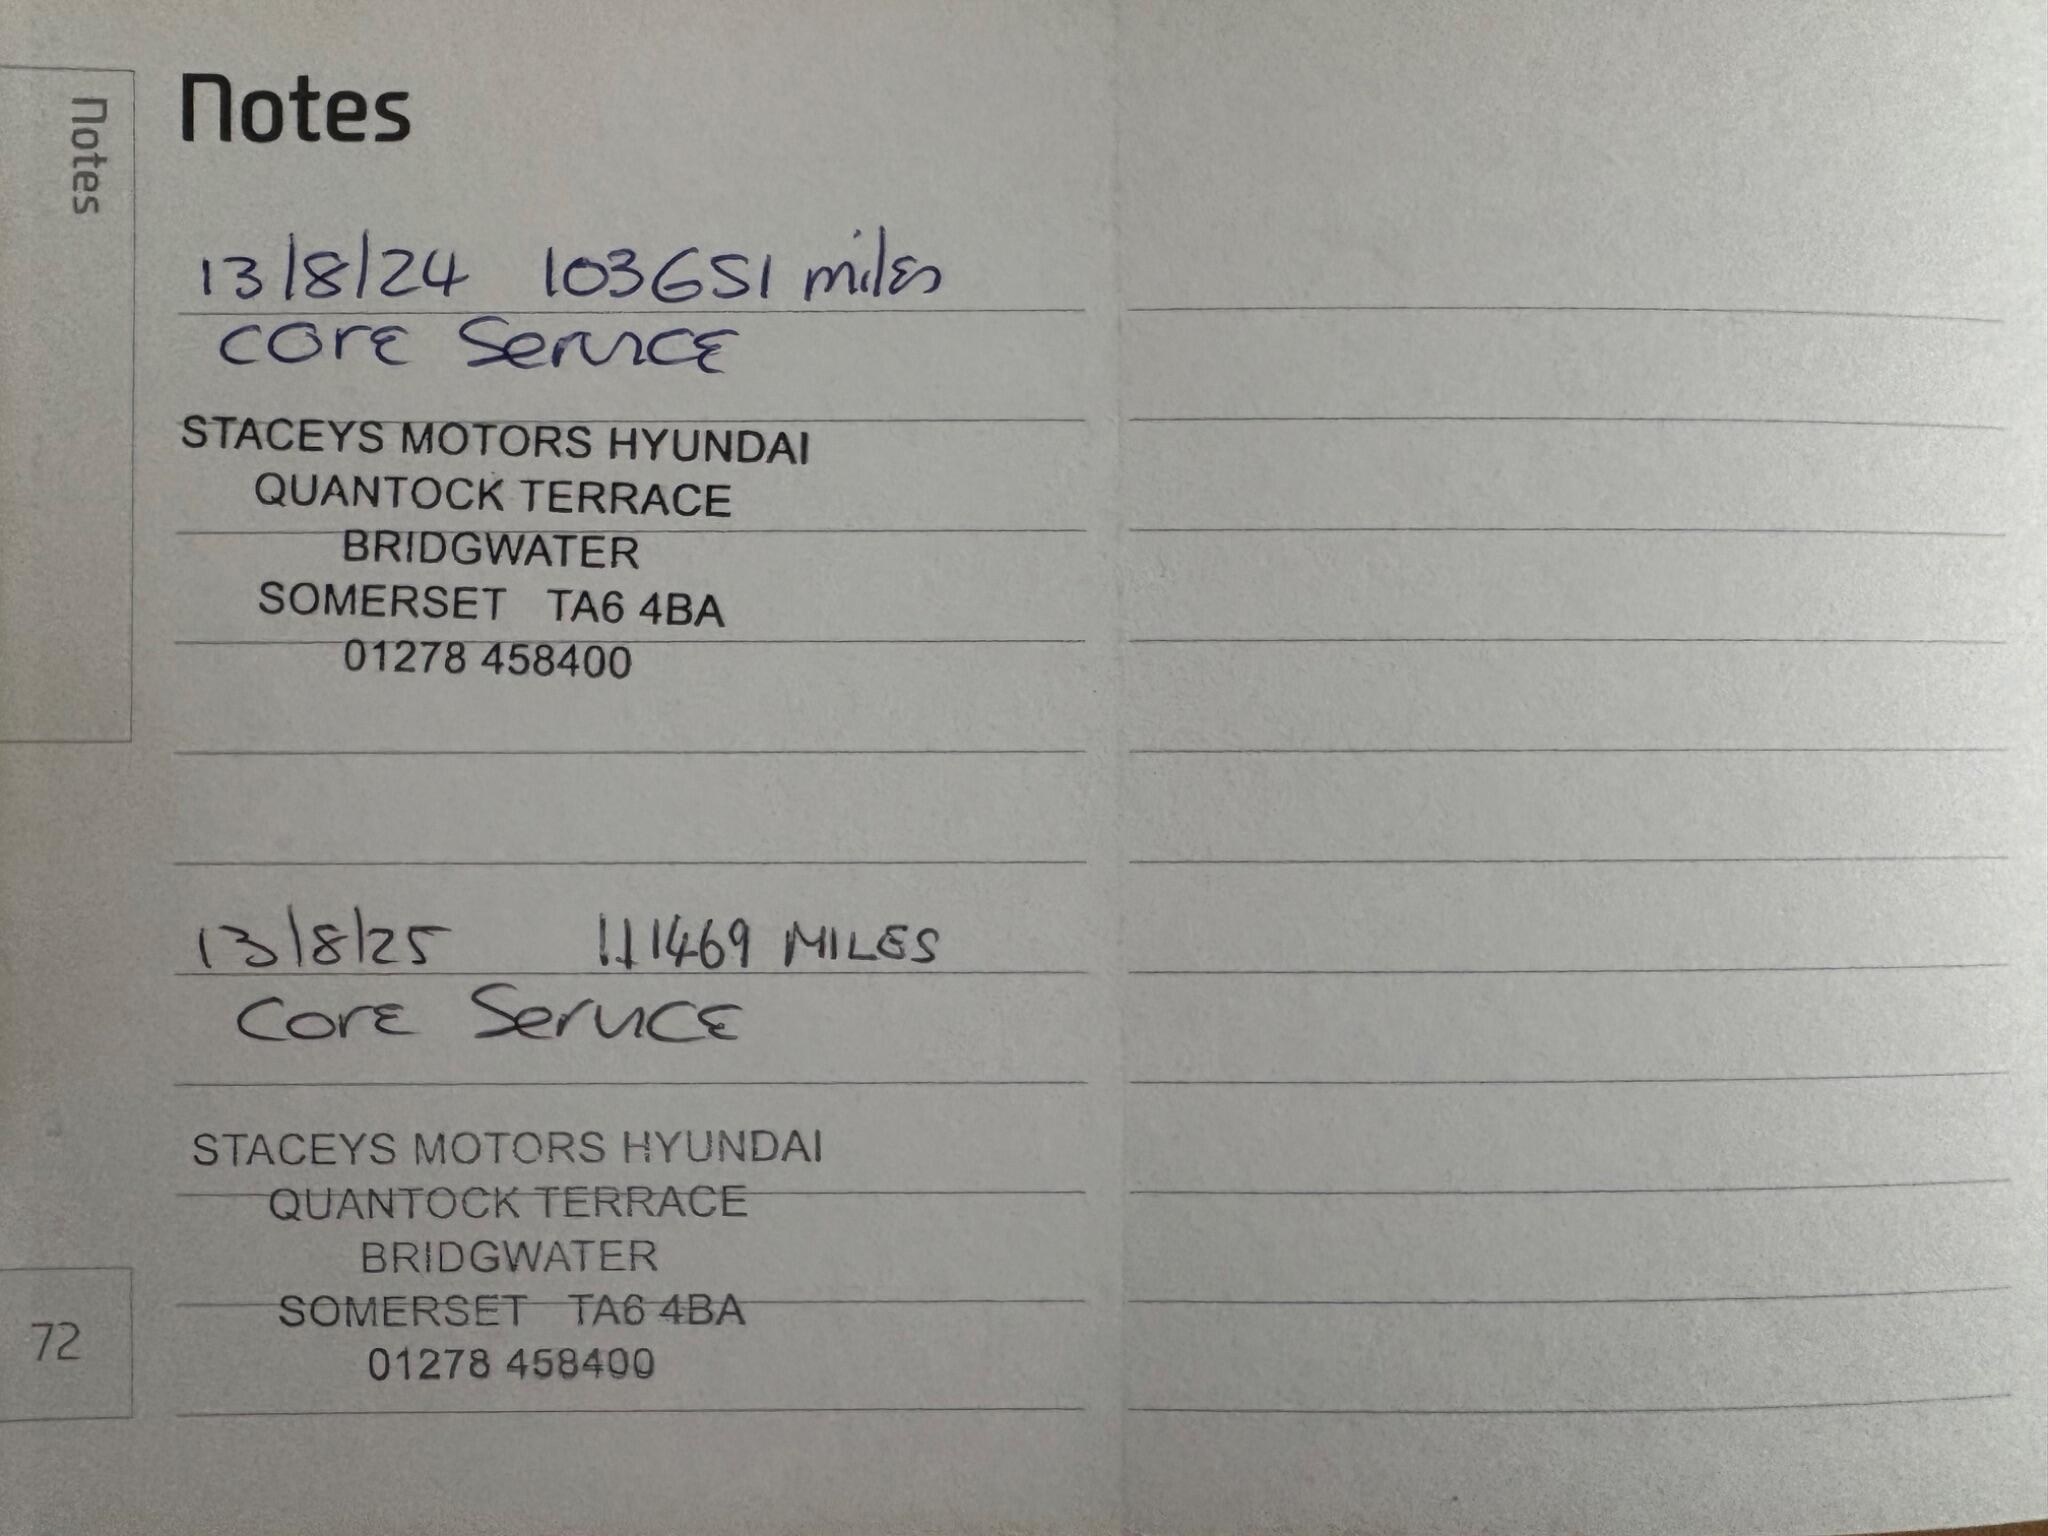 Notes
Notes
13/8/24 103651 miles
Core Service
STACEYS MOTORS HYUNDAI
QUANTOCK TERRACE
BRIDGWATER
SOMERSET TA6 4BA
01278 458400
13/8/25 111469 MILES
Core Service
STACEYS MOTORS HYUNDAI
QUANTOCK TERRACE
BRIDGWATER
SOMERSET TA6 4BA
01278 458400
72